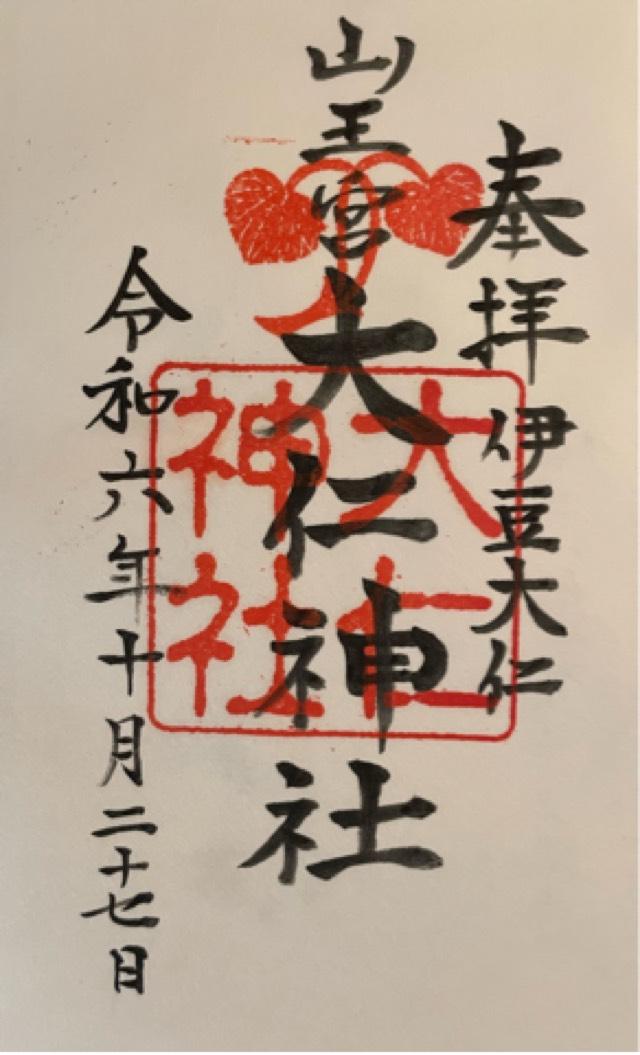 奉拝 伊豆大仁
山王宮 大仁神社
令和六年十月二十七日
大仁
神社